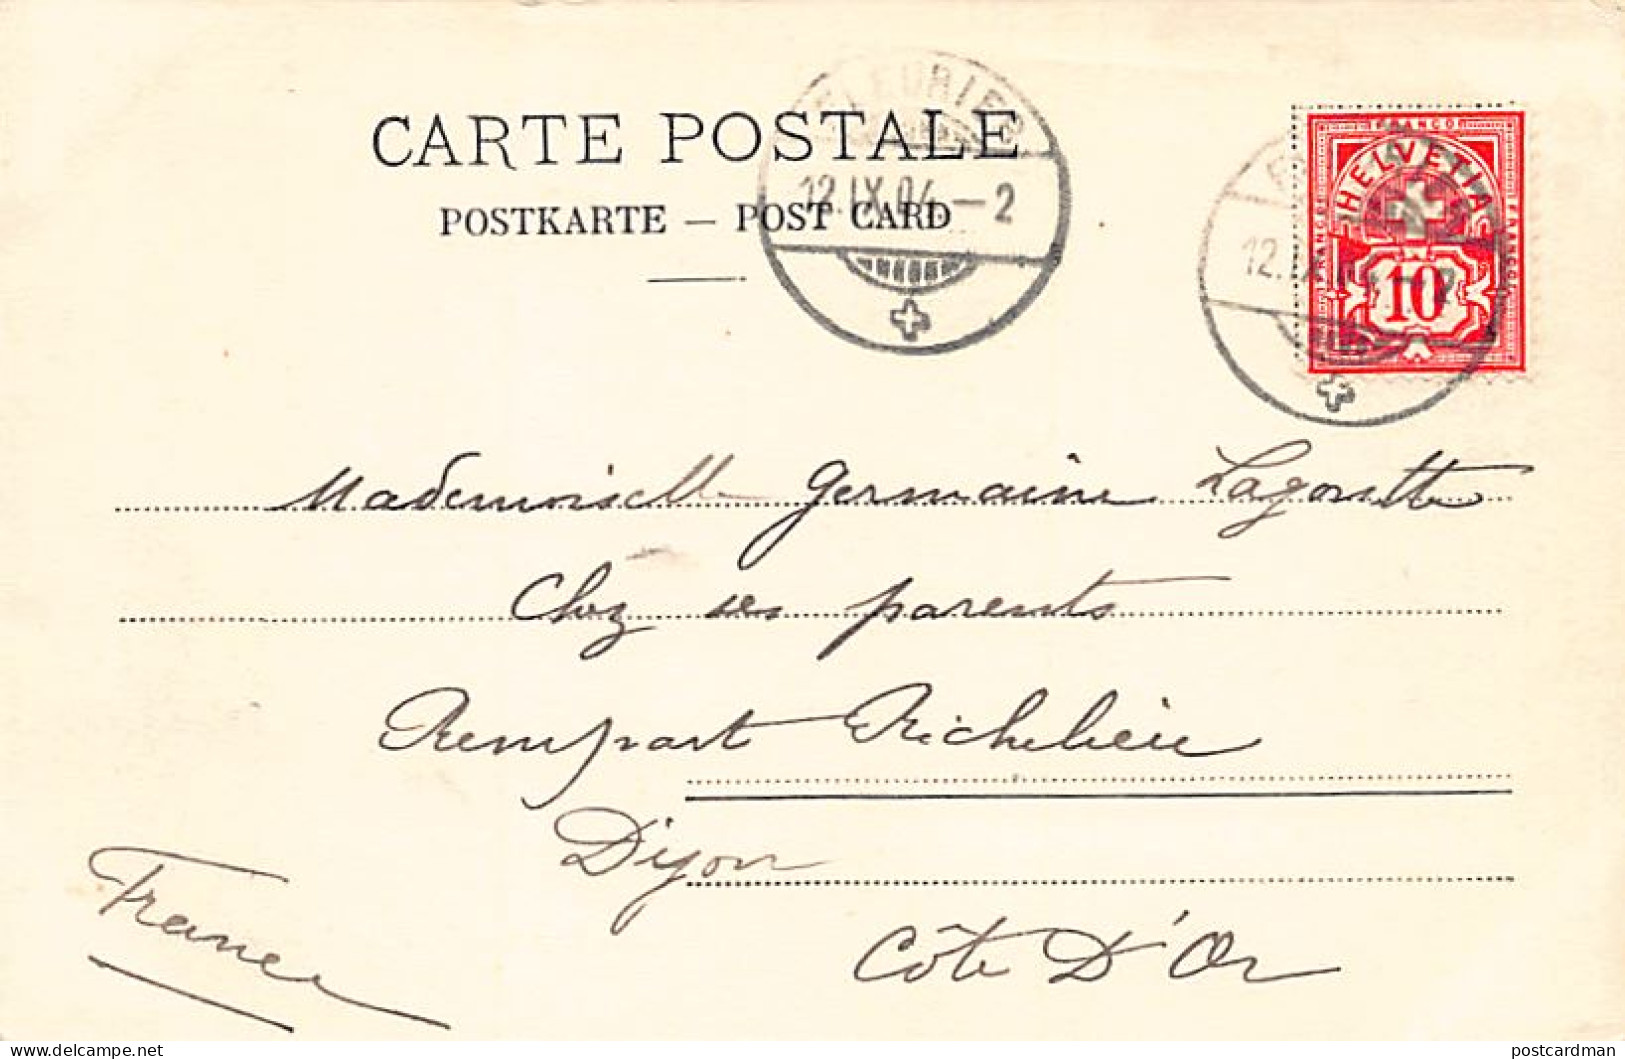 CARTE POSTALE
POSTKARTE — POST CARD
FLEURIER
12.IX.04.—2
FRANCO
HELVETIA
FRANCO
FRANCO
10
12.IX.04.—2
Mademoiselle Germaine Lagoutte
Chez ses parents
Rempart Richelieu
Dijon
Côte D'Or
France
delcampe.net
postcardman